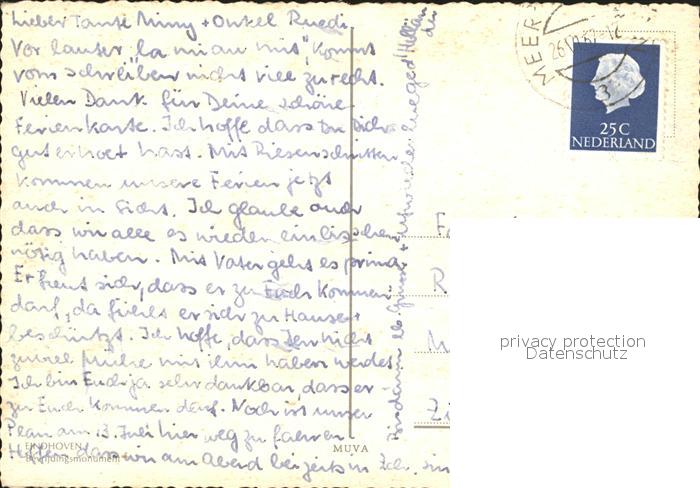 Lieber Tante Mimy + Onkel Ruedi.
Vor lauter "la mi au mit", kommt
vom schreiben nicht viel zu recht.
Vielen Dank für Deine schöne
Ferienkarte. Ich hoffe dass Du Dich
gut erholt hast. Mit Riesenschritten
kommen unsere Ferien jetzt
auch in Sicht. Ich glaube auch
dass wir alle es wieder ein bisschen
nötig haben. Mit Vater geht es prima
Er freut sich, dass er zu Euch kommen
darf, da fühlt er sich zu Hause +
beschützt. Ich hoffe, dass Ihr nicht
zuviel Mühe mit ihm haben werdet.
Ich bin Euch ja sehr dankbar, dass er
zu Euch kommen darf. Noch ist unser
Plan am 13. Juli hier weg zu fahren
Hoffen dass wir am Abend bei jets in Zch. sin
EINDHOVEN
Bevrijdingsmonument
MUVA
lb. Grüsse +
MEER
26 VI
12
3
25C
NEDERLAND
privacy protection
Datenschutz